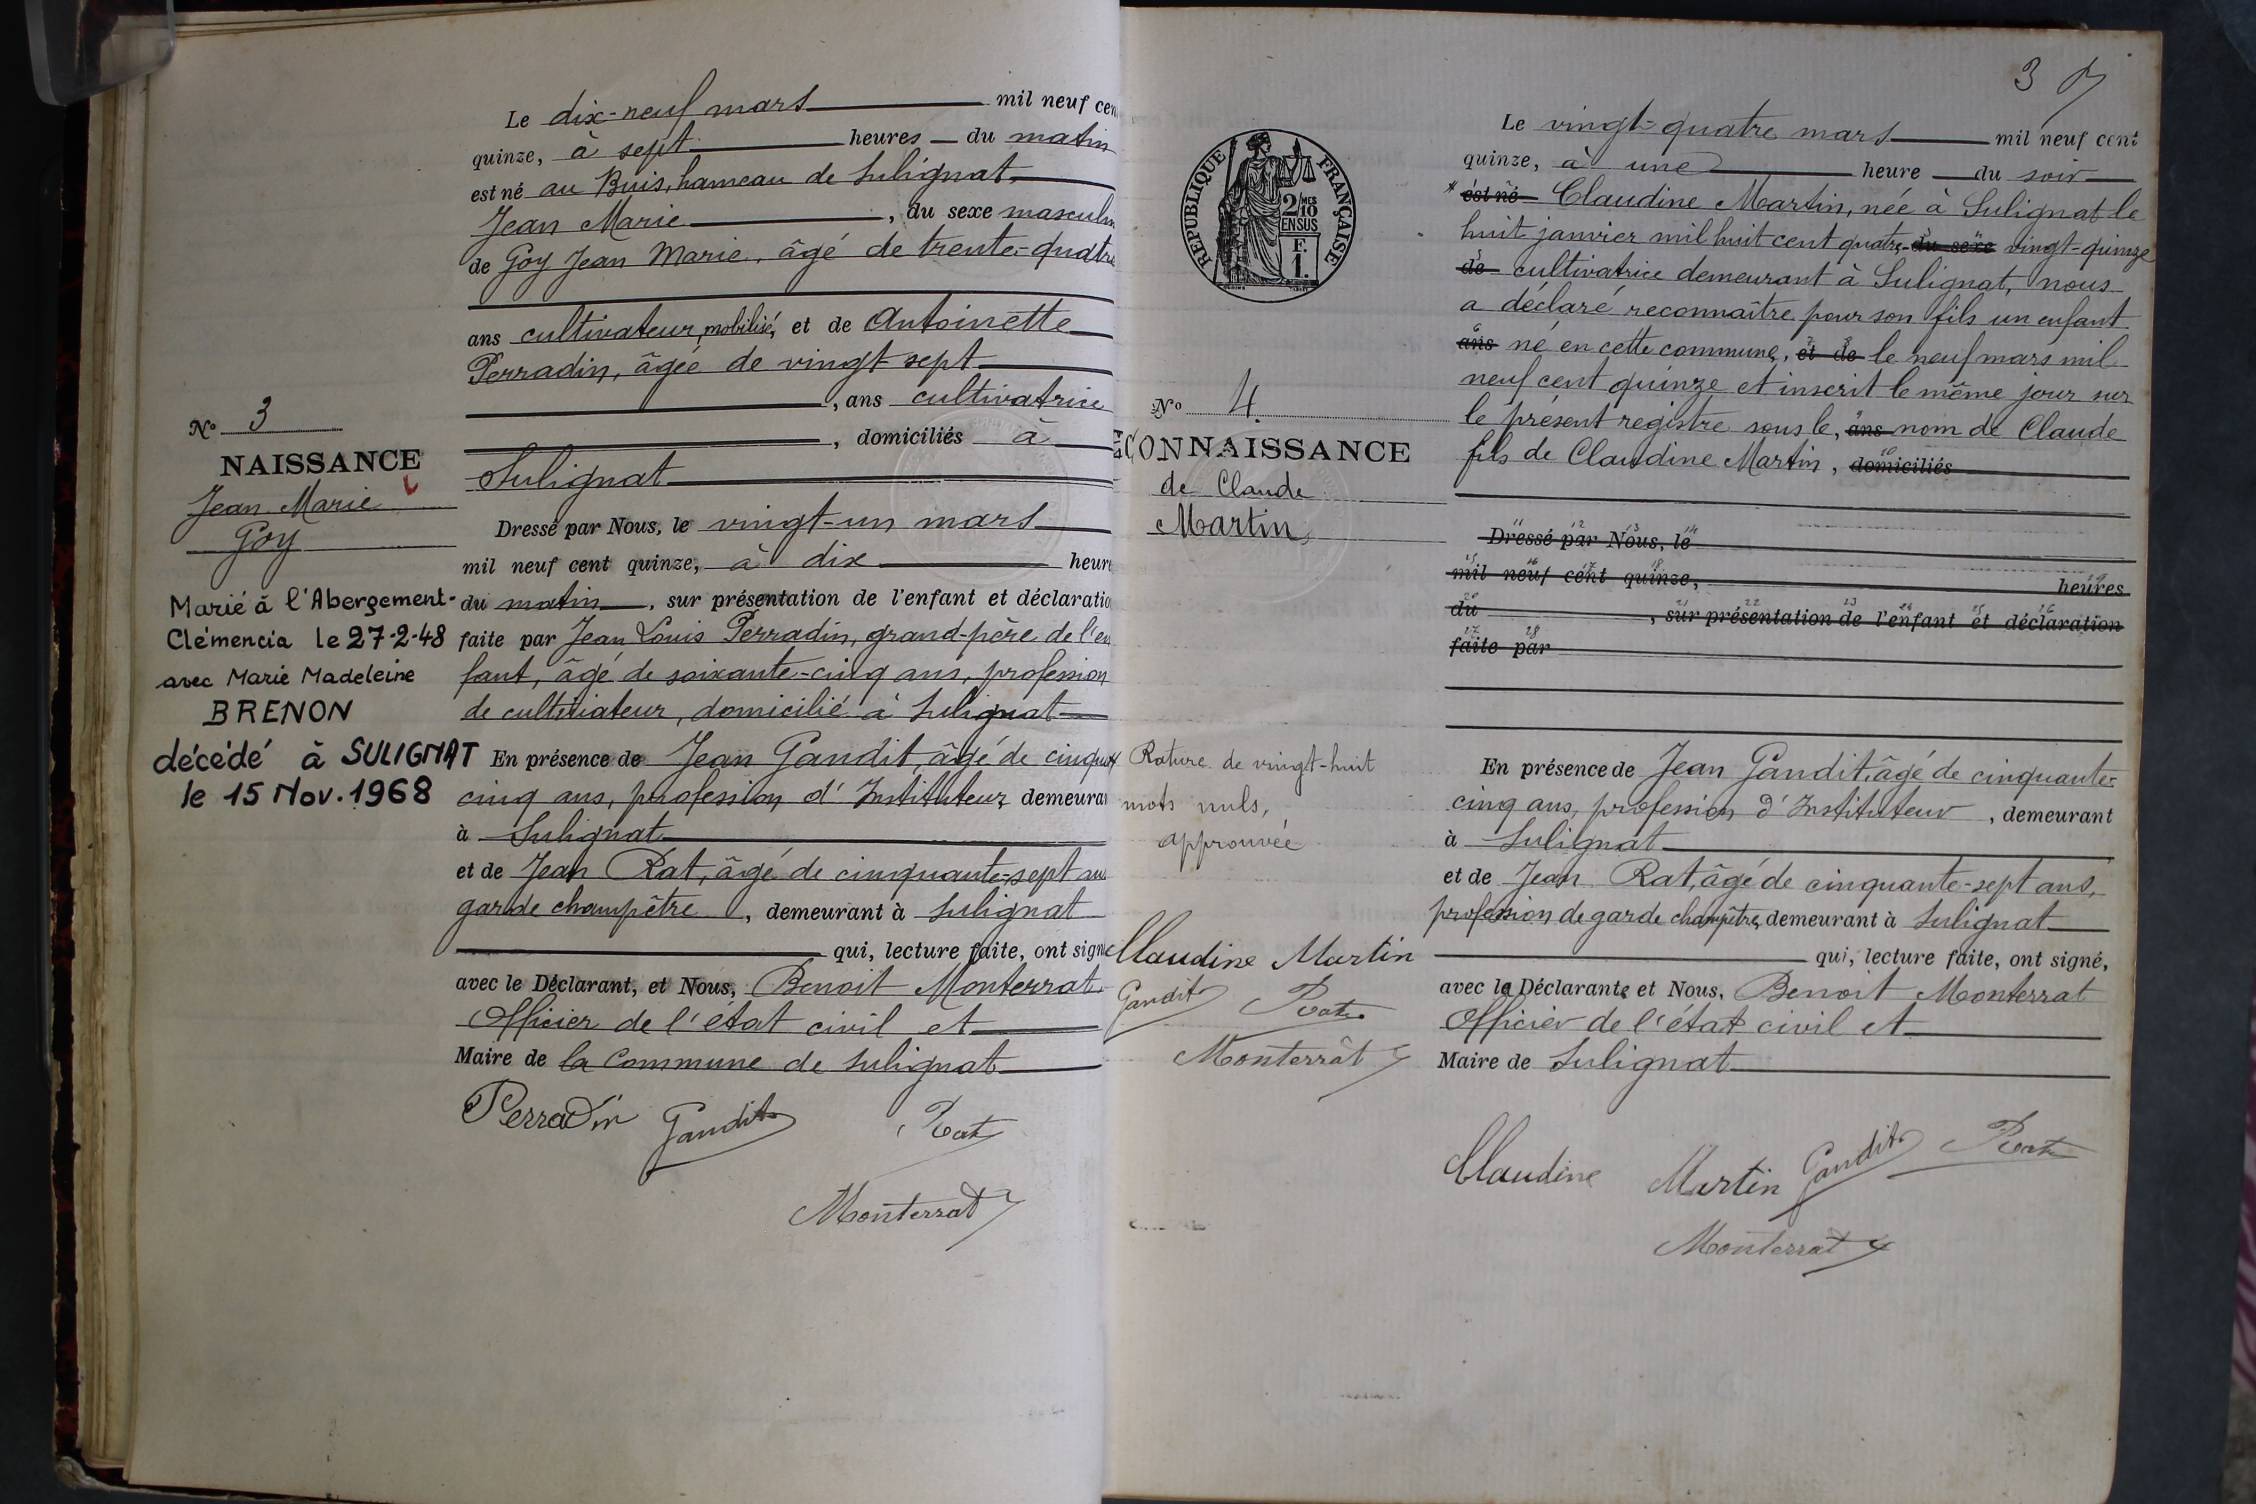 Le dix-neuf mars mil neuf cen
quinze, à sept heures du matin
est né au Buis, hameau de Sulignat,
Jean Marie, du sexe masculin
de Goy Jean Marie, âgé de trente-quatre
ans cultivateur, mobilisé, et de Antoinette
Perradin, âgée de vingt-sept
, ans cultivatrice
, domiciliés à
Sulignat
Dressé par Nous, le vingt-un mars
mil neuf cent quinze, à dix heure
du matin, sur présentation de l'enfant et déclaratio
faite par Jean Louis Perradin, grand-père de l'en
fant, âgé de soixante-cinq ans, profession
de cultivateur, domicilié à Sulignat
En présence de Jean Gandit, âgé de cinquante
cinq ans, profession d'Instituteur demeura
à Sulignat
et de Jean Rat, âgé de cinquante-sept ans
garde champêtre, demeurant à Sulignat
qui, lecture faite, ont signé
avec le Déclarant, et Nous, Benoit Monterrat
Officier de l'état civil et
Maire de la Commune de Sulignat
Perradin Gandit Rat
Monterrat
No 3
NAISSANCE
Jean Marie
Goy
Marié à l'Abergement-
Clémencia le 27-2-48
avec Marie Madeleine
BRENON
décédé à SULIGNAT
le 15 Nov. 1968
3
RÉPUBLIQUE FRANÇAISE
2 MES
10
EN SUS
F.
1.
No 4
CONNAISSANCE
de Claude
Martin
Rature de vingt-huit
mots nuls,
approuvée
Claudine Martin
Gandit Rat
Monterrat
Le vingt-quatre mars mil neuf cent
quinze, à une heure du soir
est né Claudine Martin, née à Sulignat le
huit janvier mil huit cent quatre-du sexe vingt-quinze
de cultivatrice demeurant à Sulignat, nous
a déclaré reconnaître pour son fils un enfant
ans né en cette commune, et de le neuf mars mil
neuf cent quinze et inscrit le même jour sur
le présent registre sous le, ans nom de Claude
fils de Claudine Martin, domiciliés
Dressé par Nous, le
mil neuf cent quinze, heures
du , sur présentation de l'enfant et déclaration
faite par
En présence de Jean Gandit, âgé de cinquante-
cinq ans, profession d'Instituteur, demeurant
à Sulignat
et de Jean Rat, âgé de cinquante-sept ans,
profession de garde champêtre, demeurant à Sulignat
qui, lecture faite, ont signé,
avec la Déclarante et Nous, Benoit Monterrat
Officier de l'état civil et
Maire de Sulignat
Claudine Martin Gandit Rat
Monterrat